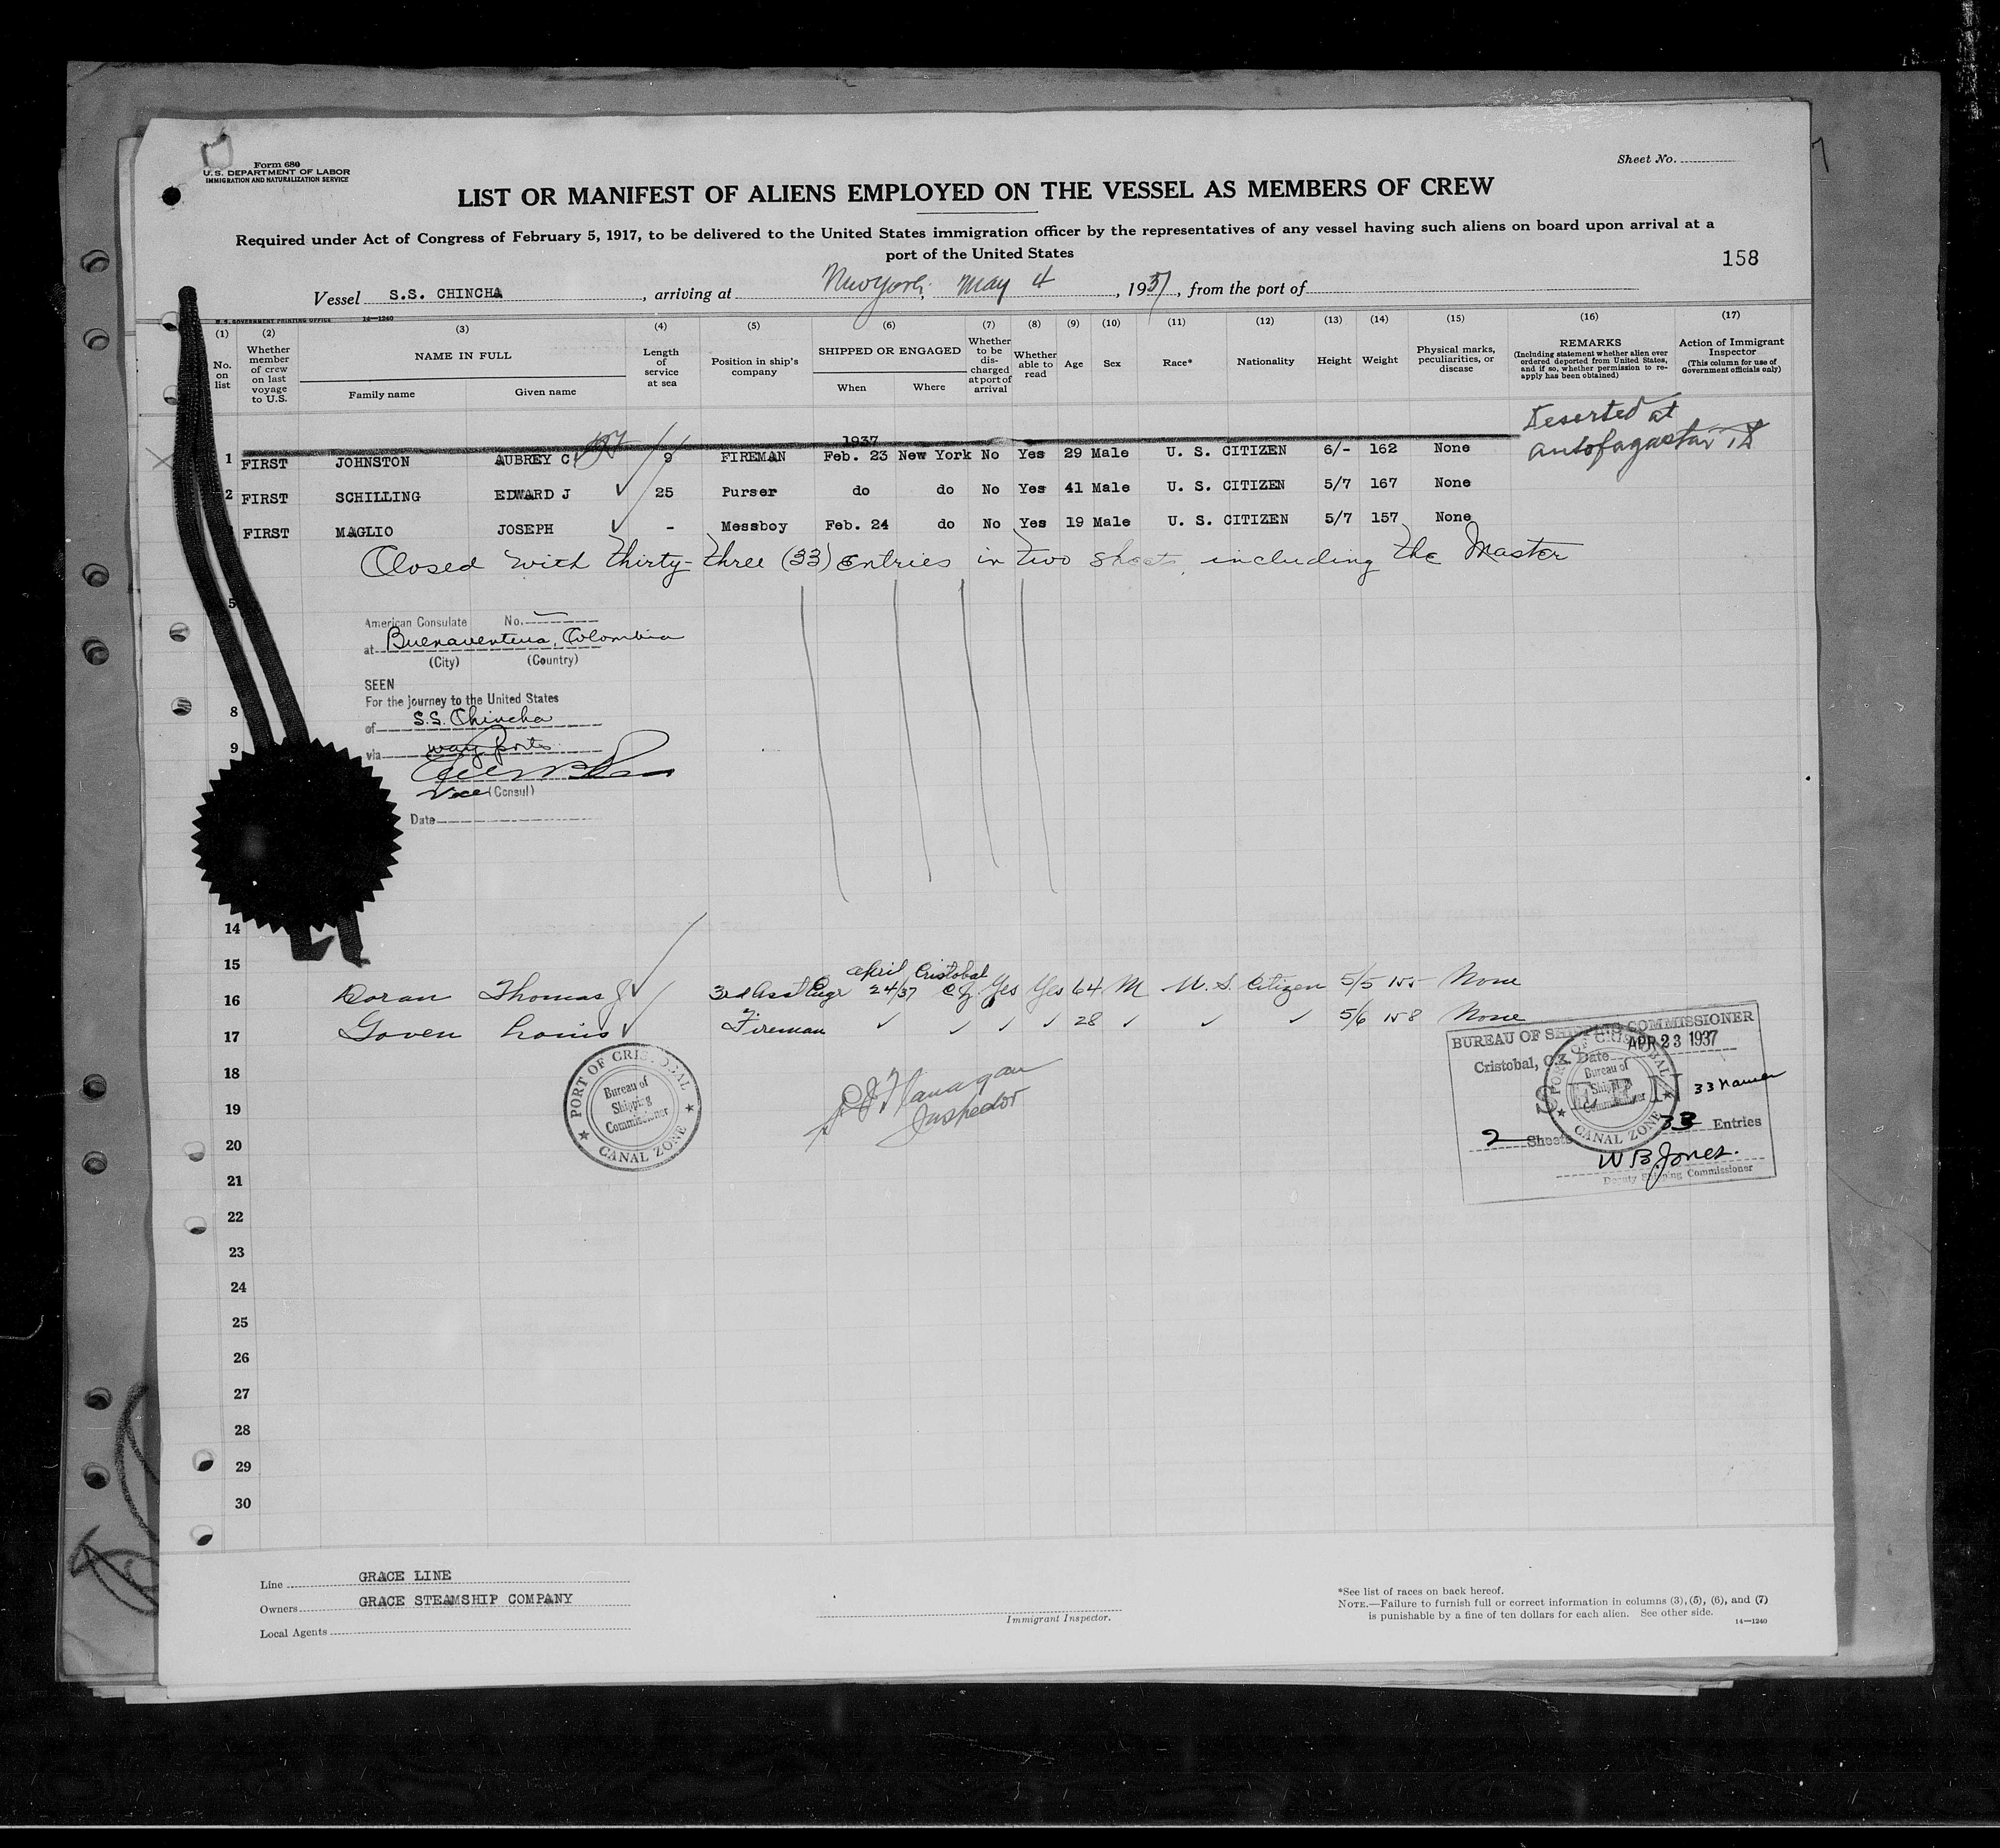 Form 680
U. S. DEPARTMENT OF LABOR
IMMIGRATION AND NATURALIZATION SERVICE
Sheet No.
LIST OR MANIFEST OF ALIENS EMPLOYED ON THE VESSEL AS MEMBERS OF CREW
Required under Act of Congress of February 5, 1917, to be delivered to the United States immigration officer by the representatives of any vessel having such aliens on board upon arrival at a
port of the United States
158
Vessel S.S. CHINCHA, arriving at New York, May 4, 1937, from the port of
U. S. GOVERNMENT PRINTING OFFICE 14—1240
(1) (2) (3) (4) (5) (6) (7) (8) (9) (10) (11) (12) (13) (14) (15) (16) (17)
No. on list
Whether member of crew on last voyage to U.S.
NAME IN FULL
Family name Given name
Length of service at sea
Position in ship's company
SHIPPED OR ENGAGED
When Where
Whether to be discharged at port of arrival
Whether able to read
Age
Sex
Race*
Nationality
Height
Weight
Physical marks, peculiarities, or disease
REMARKS
(Including statement whether alien ever ordered deported from United States, and if so, whether permission to reapply has been obtained)
Action of Immigrant Inspector
(This column for use of Government officials only)
Deserted at
Antofagasta
1937
1 FIRST JOHNSTON AUBREY C 9 FIREMAN Feb. 23 New York No Yes 29 Male U. S. CITIZEN 6/- 162 None
2 FIRST SCHILLING EDWARD J 25 Purser do do No Yes 41 Male U. S. CITIZEN 5/7 167 None
FIRST MAGLIO JOSEPH - Messboy Feb. 24 do No Yes 19 Male U. S. CITIZEN 5/7 157 None
Closed with thirty-three (33) entries in two sheets, including the Master
5
American Consulate No.
at Buenaventura, Colombia
(City) (Country)
SEEN
For the journey to the United States
8
of S.S. Chincha
9
via way ports
Vice (Consul)
Date
14
15
april Cristobal
16 Doran Thomas J 3rd Asst Engr 24/37 C.Z. Yes Yes 64 M U. S. Citizen 5/5 155 None
17 Goven Louis Fireman 28 5/6 158 None
18
19
20
21
22
23
24
25
26
27
28
29
30
PORT OF CRISTOBAL
Bureau of
Shipping
Commissioner
CANAL ZONE
Flanagan
Inspector
BUREAU OF SHIPPING COMMISSIONER
Cristobal, C.Z. Date APR 23 1937
SEEN
33 names
2 Sheets 33 Entries
W B Jones.
Deputy Shipping Commissioner
PORT OF CRISTOBAL
Bureau of
Shipping
Commissioner
CANAL ZONE
Line GRACE LINE
Owners GRACE STEAMSHIP COMPANY
Local Agents
Immigrant Inspector.
*See list of races on back hereof.
NOTE.—Failure to furnish full or correct information in columns (3), (5), (6), and (7)
is punishable by a fine of ten dollars for each alien. See other side.
14—1240